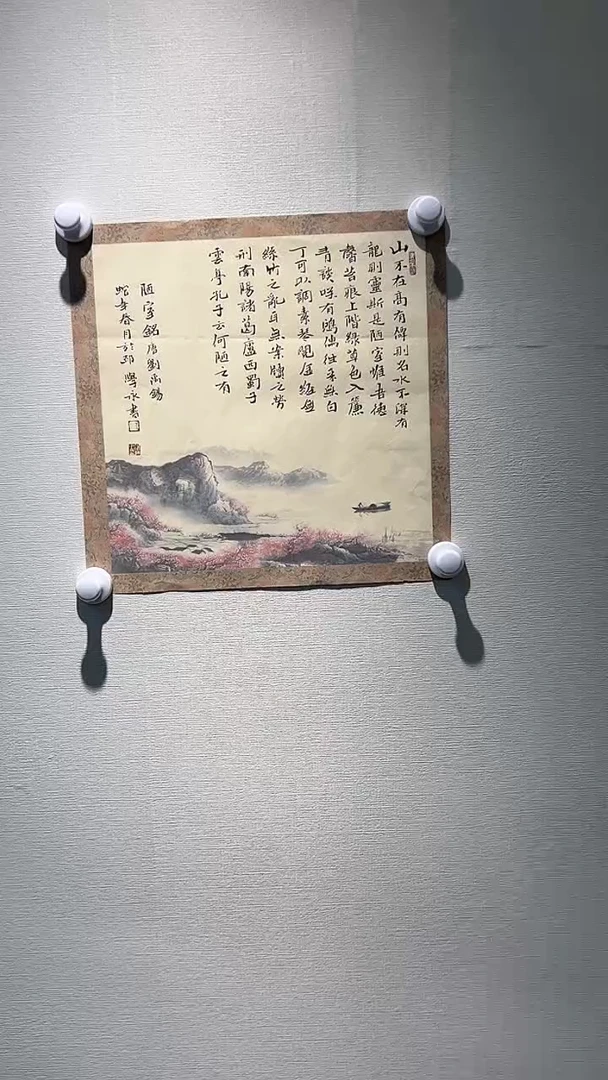 山不在高有僊則名水不深有
龍則靈斯是陋室惟吾德
馨苔痕上階綠草色入簾
青談咲有鴻儒往來無白
丁可以調素琴閱金經無
絲竹之亂耳無案牘之勞
刑南陽諸葛廬西蜀子
雲亭孔子云何陋之有
陋室銘唐劉禹錫
蛇年春月於 學永書